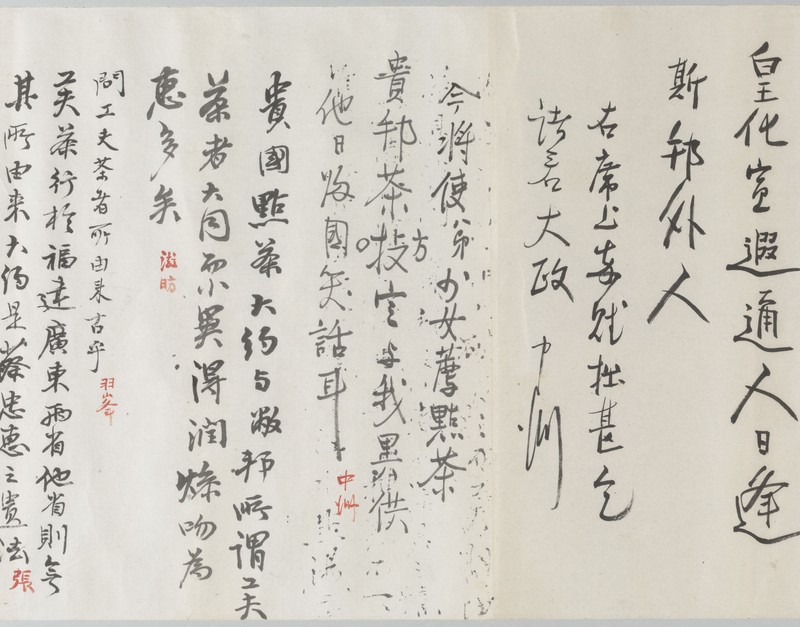 皇化宣遐通人日逢
斯邦外人
右席上未就拙甚乞
諸君大政 中洲
今將使弟少女薦點茶
貴邦茶投它与我異供
方
他日歸國笑話耳 中洲
貴國點茶大約与敝邦所謂工夫
茶者大同而小異得潤燥吻為
惠多矣 滋昉
問工夫茶者所由来古乎 羽峯
芙茶行於福建廣東兩省他省則無
其所由来大約是蔡忠惠之遺法 張